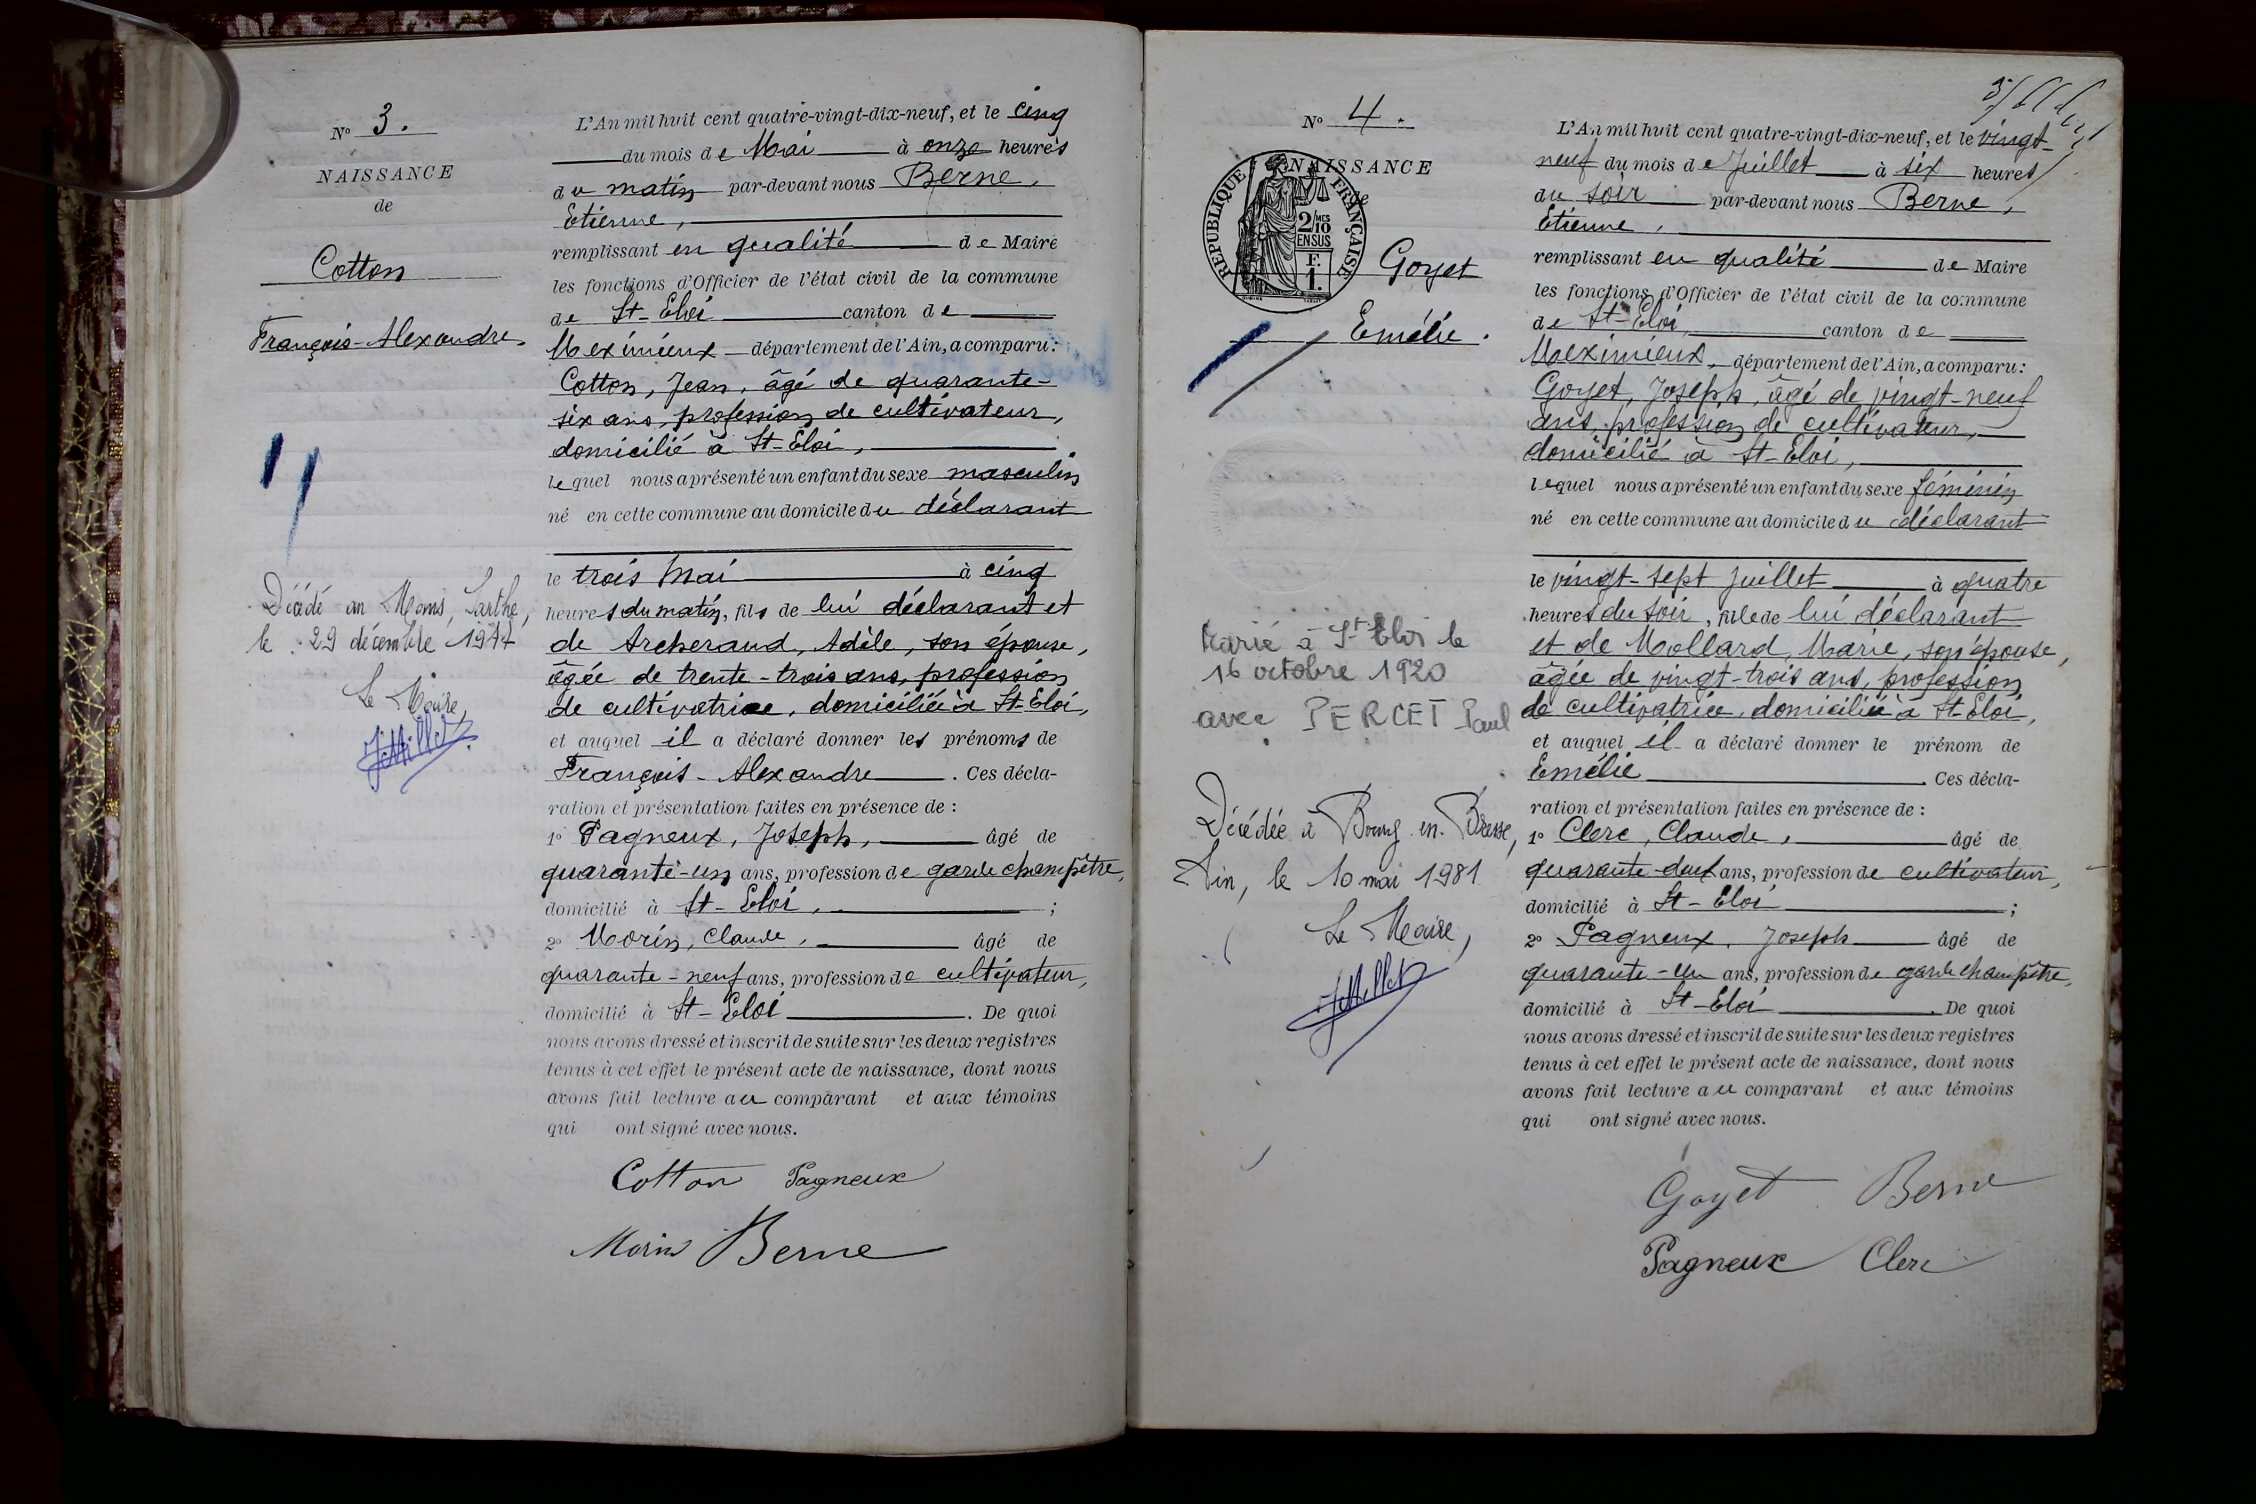 N° 3.
NAISSANCE
de
Cotton
François-Alexandre
Décédé au Mans, Sarthe,
le 29 décembre 1977
Le Maire,
L'An mil huit cent quatre-vingt-dix-neuf, et le cinq
du mois de Mai à onze heures
du matin par-devant nous Berne,
Etienne,
remplissant en qualité de Maire
les fonctions d'Officier de l'état civil de la commune
de St-Eloi canton de
Meximieux département de l'Ain, a comparu:
Cotton, Jean, âgé de quarante-
six ans, profession de cultivateur,
domicilié à St-Eloi,
lequel nous a présenté un enfant du sexe masculin
né en cette commune au domicile du déclarant
le trois Mai à cinq
heures du matin, fils de lui déclarant et
de Archeraud, Adèle, son épouse,
âgée de trente-trois ans, profession
de cultivatrice, domiciliée à St-Eloi,
et auquel il a déclaré donner les prénoms de
François-Alexandre. Ces décla-
ration et présentation faites en présence de :
1° Pagneux, Joseph, âgé de
quarante-un ans, profession de garde champêtre,
domicilié à St-Eloi, ;
2° Morin, Claude, âgé de
quarante-neuf ans, profession de cultivateur,
domicilié à St-Eloi. De quoi
nous avons dressé et inscrit de suite sur les deux registres
tenus à cet effet le présent acte de naissance, dont nous
avons fait lecture au comparant et aux témoins
qui ont signé avec nous.
Cotton Pagneux
Morin Berne
N° 4.
NAISSANCE
de
REPUBLIQUE FRANÇAISE
2/10 MES
EN SUS
F.
1.
Goyet
Emélie.
Marié à St Eloi le
16 octobre 1920
avec PERCET Paul
Décédée à Bourg-en-Bresse,
Ain, le 10 mai 1981
Le Maire,
L'An mil huit cent quatre-vingt-dix-neuf, et le vingt-
neuf du mois de Juillet à six heures
du soir par-devant nous Berne,
Etienne,
remplissant en qualité de Maire
les fonctions d'Officier de l'état civil de la commune
de St-Eloi, canton de
Meximieux, département de l'Ain, a comparu:
Goyet, Joseph, âgé de vingt-neuf
ans, profession de cultivateur,
domicilié à St-Eloi,
lequel nous a présenté un enfant du sexe féminin
né en cette commune au domicile du déclarant
le vingt-sept Juillet à quatre
heures du soir, fille de lui déclarant
et de Mollard, Marie, son épouse,
âgée de vingt-trois ans, profession
de cultivatrice, domiciliée à St-Eloi,
et auquel il a déclaré donner le prénom de
Emélie. Ces décla-
ration et présentation faites en présence de :
1° Clerc, Claude, âgé de
quarante-deux ans, profession de cultivateur,
domicilié à St-Eloi ;
2° Pagneux, Joseph âgé de
quarante-un ans, profession de garde champêtre,
domicilié à St-Eloi. De quoi
nous avons dressé et inscrit de suite sur les deux registres
tenus à cet effet le présent acte de naissance, dont nous
avons fait lecture au comparant et aux témoins
qui ont signé avec nous.
Goyet Berne
Pagneux Clerc